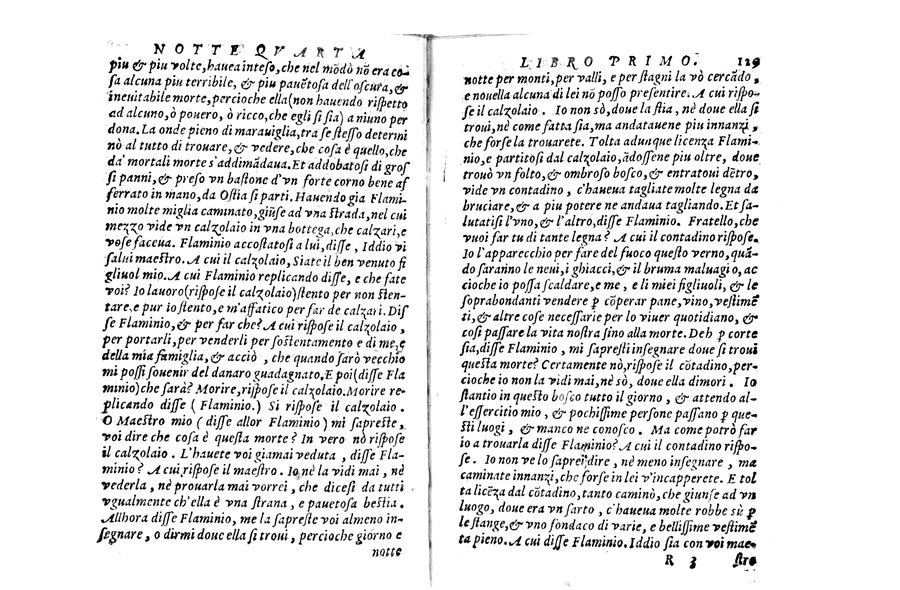 NOTTE QVARTA
piu & piu volte, hauea inteso, che nel mōdo nō era co-
sa alcuna piu terribile, & piu pauētosa dell'oscura, &
ineuitabile morte, percioche ella (non hauendo rispetto
ad alcuno, ò pouero, ò ricco, che egli si sia) a niuno per
dona. La onde pieno di marauiglia, tra se stesso determi
nò al tutto di trouare, & vedere, che cosa è quello, che
da' mortali morte s'addimādaua. Et addobatosi di gros
si panni, & preso vn bastone d'vn forte corno bene af
ferrato in mano, da Ostia si partì. Hauendo gia Flami-
nio molte miglia caminato, giūse ad vna strada, nel cui
mezzo vide vn calzolaio in vna bottega, che calzari, e
vose faceua. Flaminio accostatosi a lui, disse, Iddio vi
salui maestro. A cui il calzolaio, Siate il ben venuto fi
gliuol mio. A cui Flaminio replicando disse, e che fate
voi? Io lauoro (rispose il calzolaio) stento per non sten-
tare, e pur io stento, e m'affatico per far de calzari. Dis
se Flaminio, & per far che? A cui rispose il calzolaio,
per portarli, per venderli per sostentamento e di me, e
della mia famiglia, & acciò, che quando sarò vecchio
mi possi souenir del danaro guadagnato. E poi (disse Fla
minio) che sarà? Morire, rispose il calzolaio. Morire re-
plicando disse (Flaminio.) Si rispose il calzolaio.
O Maestro mio (disse allor Flaminio) mi sapreste,
voi dire che cosa è questa morte? In vero nò rispose
il calzolaio. L'hauete voi giamai veduta, disse Fla-
minio? A cui rispose il maestro. Io nè la vidi mai, nè
vederla, nè prouarla mai vorrei, che dicesi da tutti
vgualmente ch'ella è vna strana, e pauetosa bestia.
Allhora disse Flaminio, me la sapreste voi almeno in-
segnare, o dirmi doue ella si troui, percioche giorno e
notte
LIBRO PRIMO. 129
notte per monti, per valli, e per stagni la vò cercādo,
e nouella alcuna di lei nō posso presentire. A cui rispo-
se il calzolaio. Io non sò, doue la stia, nè doue ella si
troui, nè come fatta sia, ma andatauene piu innanzi,
che forse la trouarete. Tolta adunque licenza Flami-
nio, e partitosi dal calzolaio, ādossene piu oltre, doue
trouò vn folto, & ombroso bosco, & entratoui dētro,
vide vn contadino, c'haueua tagliate molte legna da
bruciare, & a piu potere ne andaua tagliando. Et sa-
lutatisi l'vno, & l'altro, disse Flaminio. Fratello, che
vuoi far tu di tante legna? A cui il contadino rispose.
Io l'apparecchio per fare del fuoco questo verno, quā-
do saranno le neui, i ghiacci, & il bruma maluagio, ac
cioche io possa scaldare, e me, e li miei figliuoli, & le
soprabondanti vendere ꝑ cōperar pane, vino, vestimē
ti, & altre cose necessarie per lo viuer quotidiano, &
cosi passare la vita nostra fino alla morte. Deh ꝑ corte
sia, disse Flaminio, mi sapresti insegnare doue si troui
questa morte? Certamente nò, rispose il cōtadino, per-
cioche io non la vidi mai, nè sò, doue ella dimori. Io
stantio in questo bosco tutto il giorno, & attendo al-
l'essercitio mio, & pochissime persone passano ꝑ que-
sti luoghi, & manco ne conosco. Ma come potrò far
io a trouarla disse Flaminio? A cui il contadino rispo-
se. Io non ve lo saprei dire, nè meno insegnare, ma
caminate innanzi, che forse in lei v'incapperete. E tol
ta licēza dal cōtadino, tanto caminò, che giunse ad vn
luogo, doue era vn sarto, c'haueua molte robbe sù ꝑ
le stange, & vno fondaco di varie, e bellissime vestimē
ta pieno. A cui disse Flaminio. Iddio sia con voi mae-
R 3 stro